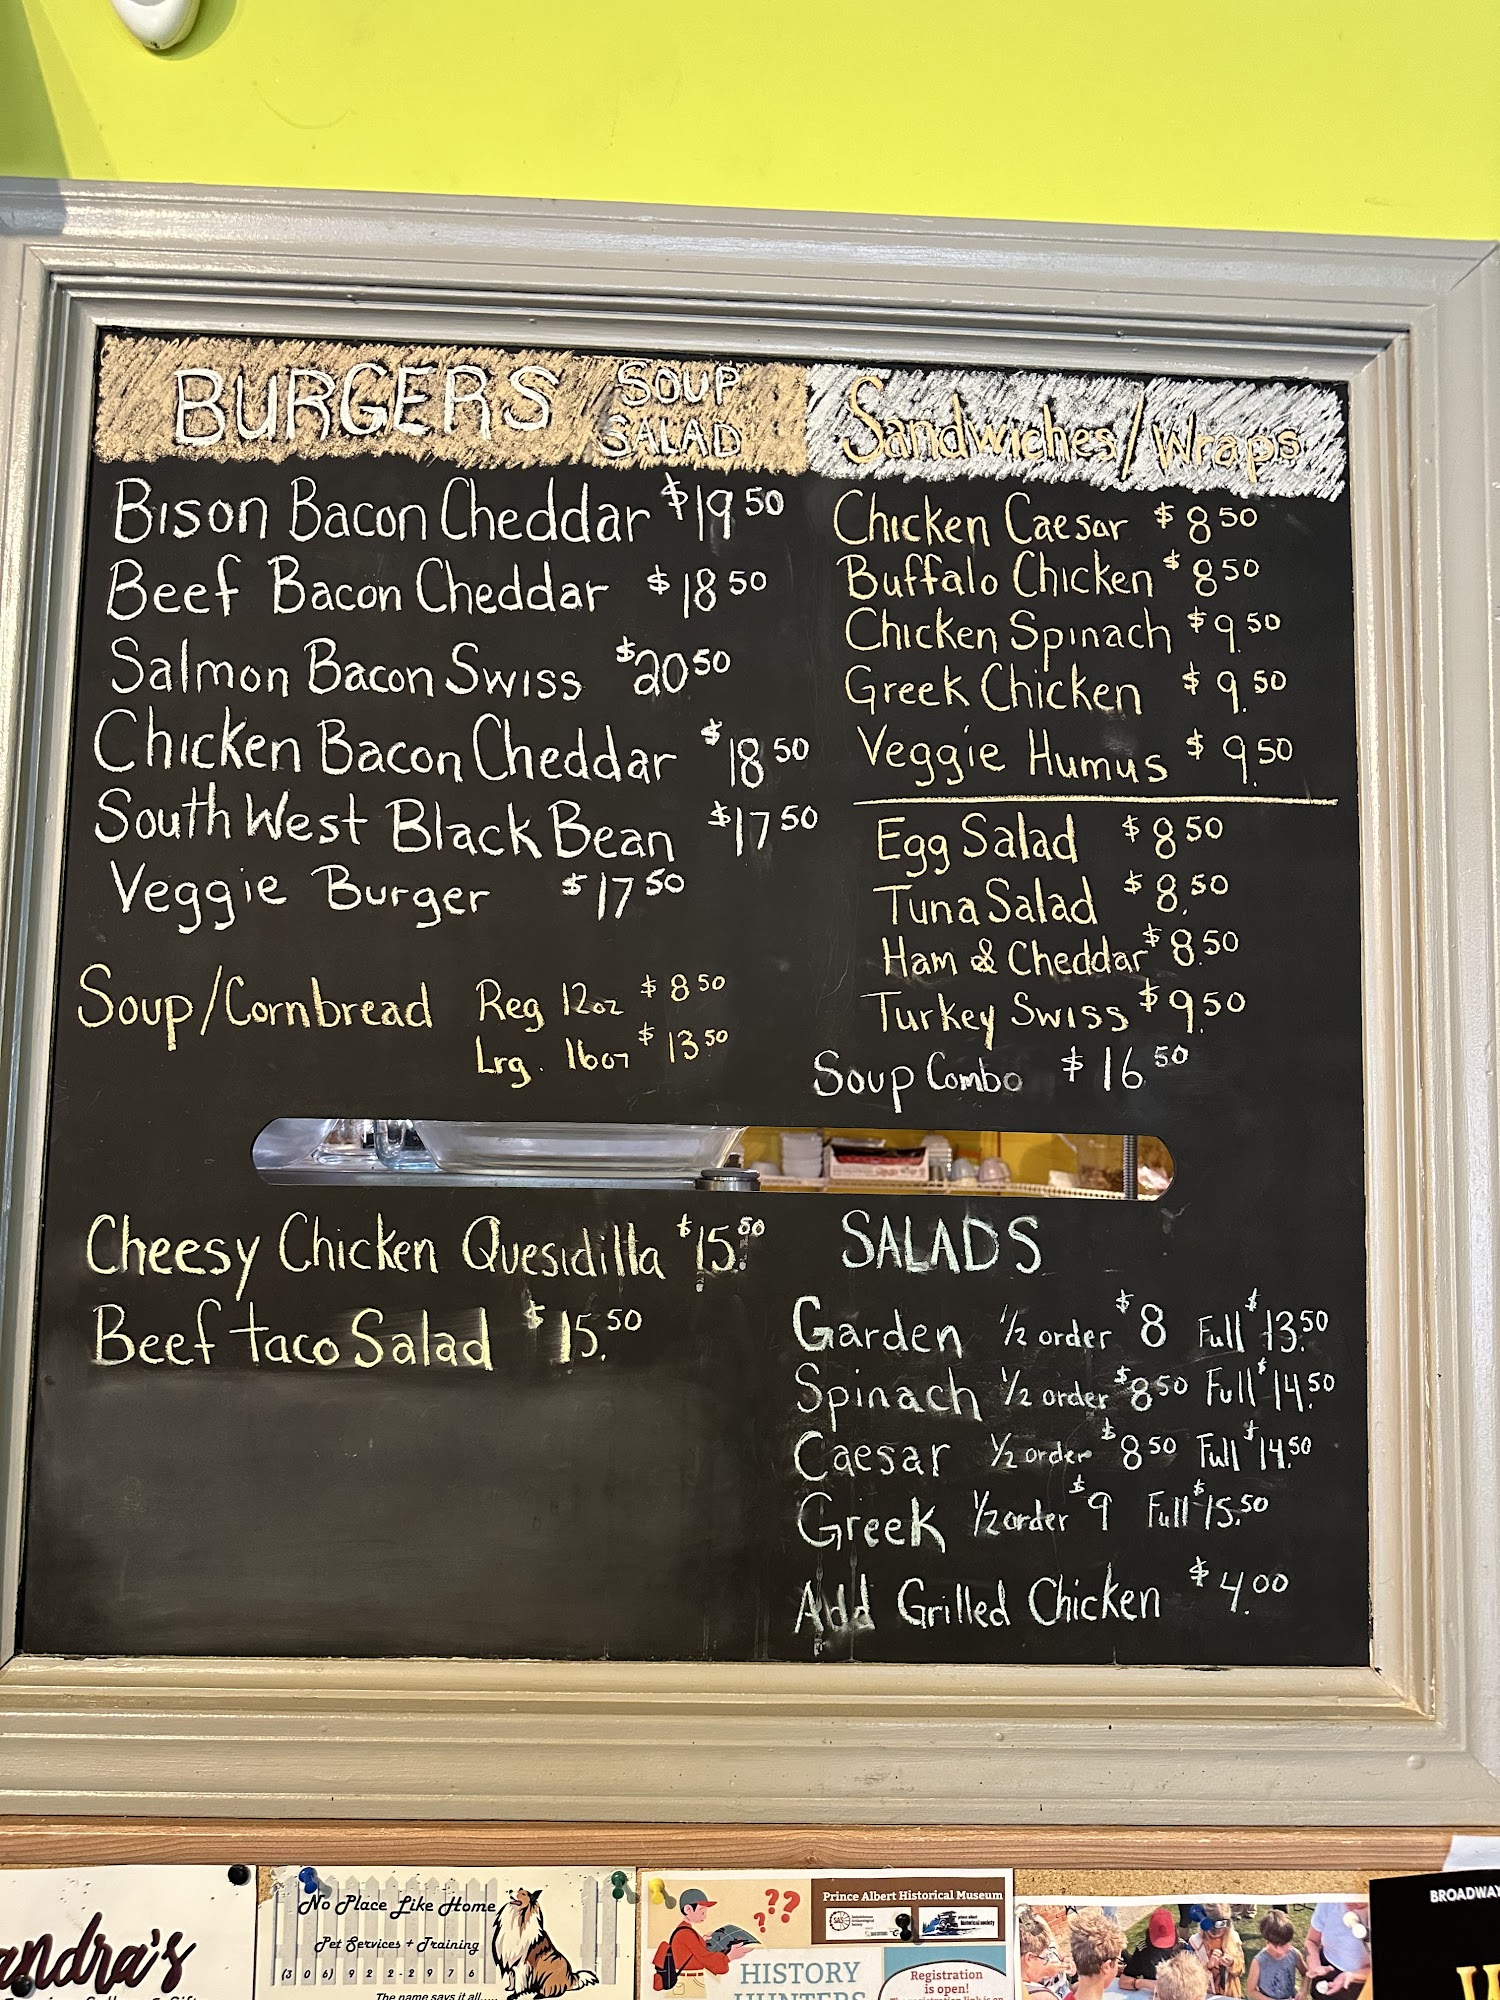 BURGERS SOUP
SALAD
Bison Bacon Cheddar $19 50
Beef Bacon Cheddar $18 50
Salmon Bacon Swiss $20 50
Chicken Bacon Cheddar $18 50
South West Black Bean $17 50
Veggie Burger $17 50
Soup/Cornbread Reg 12oz $8 50
Lrg. 16oz $13 50
Sandwiches/Wraps
Chicken Caesar $8 50
Buffalo Chicken $8 50
Chicken Spinach $9.50
Greek Chicken $9.50
Veggie Humus $9.50
Egg Salad $8 50
Tuna Salad $8.50
Ham & Cheddar $8.50
Turkey Swiss $9.50
Soup Combo $16 50
Cheesy Chicken Quesidilla $15.50
Beef taco Salad $15.50
SALADS
Garden 1/2 order $8 Full $13.50
Spinach 1/2 order $8 50 Full $14.50
Caesar 1/2 order $8 50 Full $14.50
Greek 1/2 order $9 Full $15.50
Add Grilled Chicken $4.00
andra's
No Place Like Home
Pet Services + Training
(306) 922-2976
The name says it all.....
??
?
Prince Albert Historical Museum
HISTORY
HUNTERS
Registration
is open!
BROADWAY